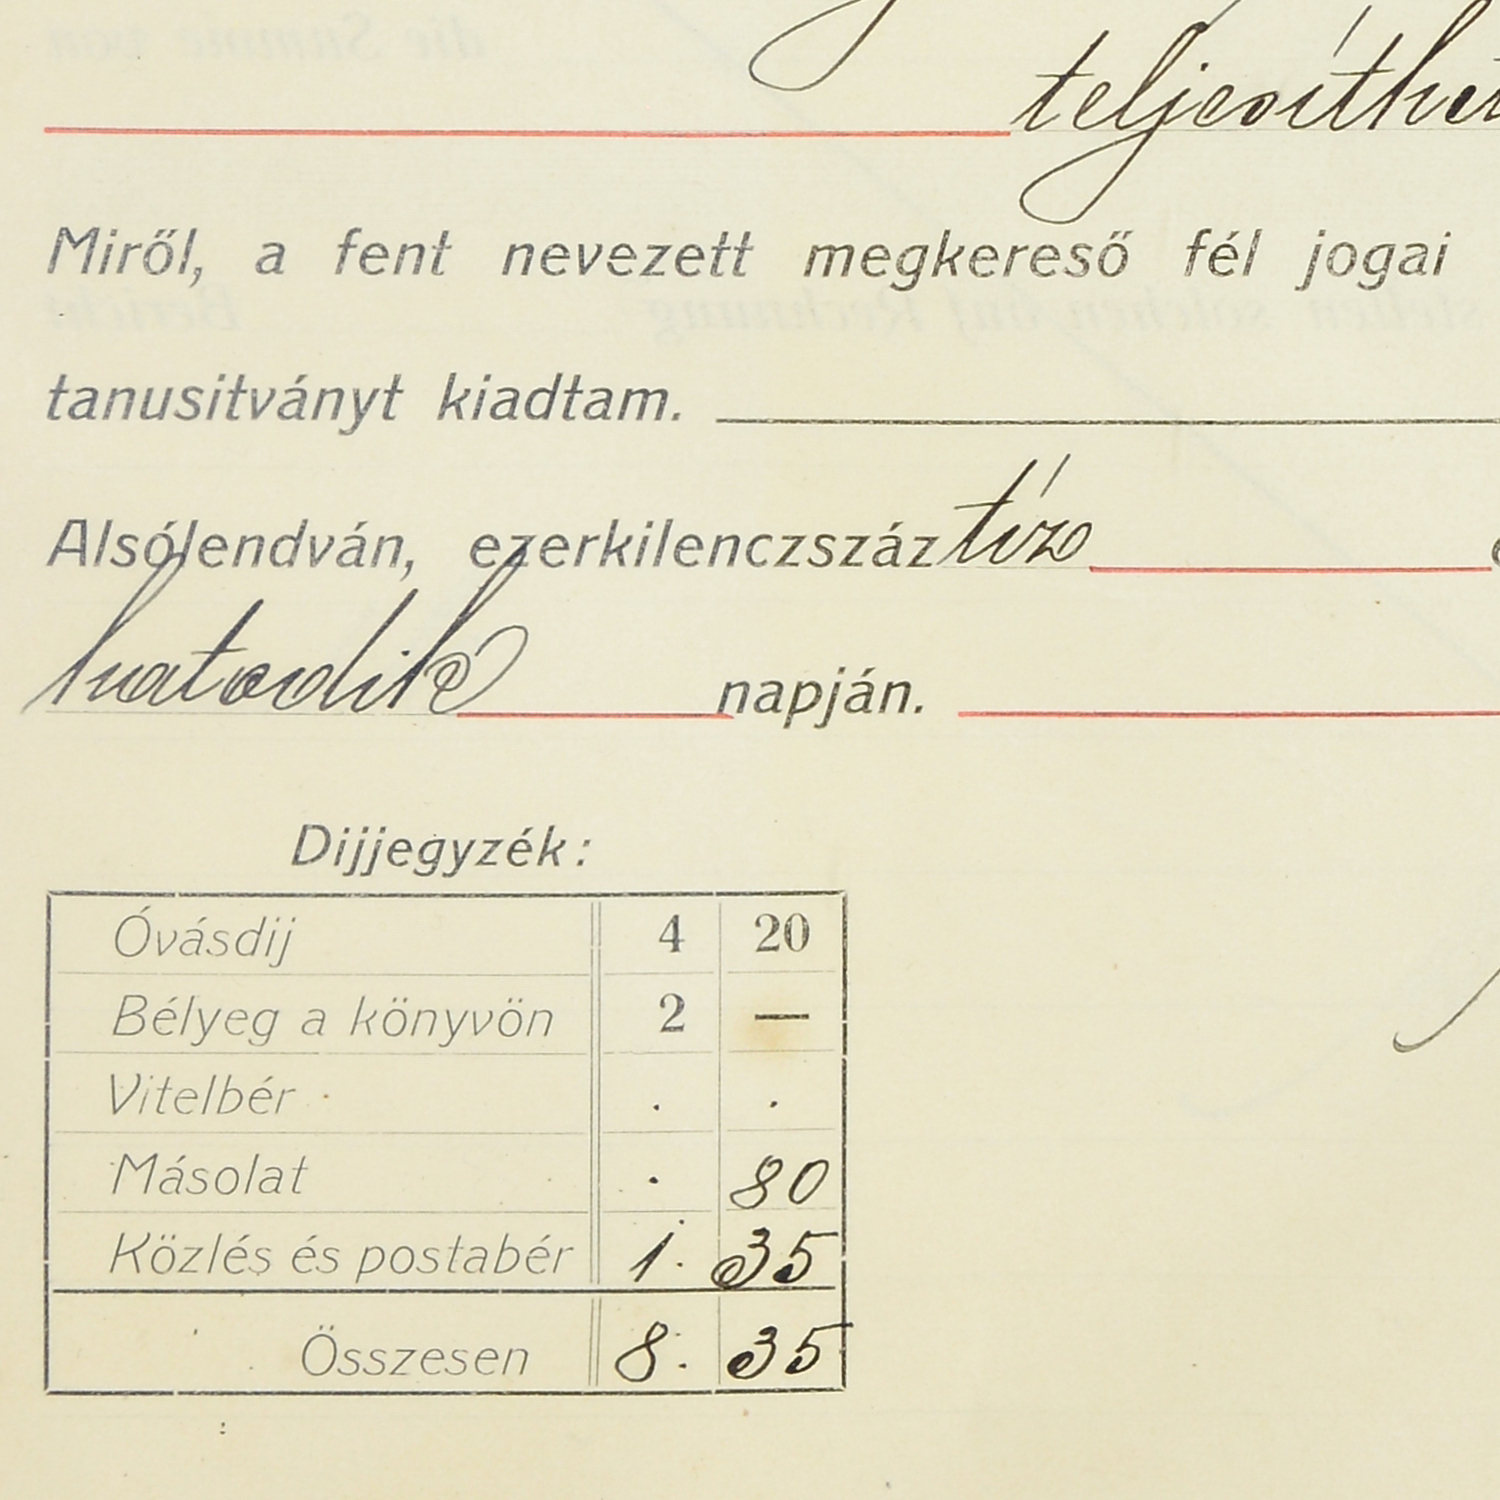 Miről, a fent nevezett megkereső fél jogai
tanusitványt kiadtam.
Alsólendván, ezerkilenczszáz tíz
hatodik napján.
Dijjegyzék:
Óvásdij 4 20
Bélyeg a könyvön 2 —
Vitelbér . .
Másolat . 80
Közlés és postabér 1. 35
Összesen 8. 35